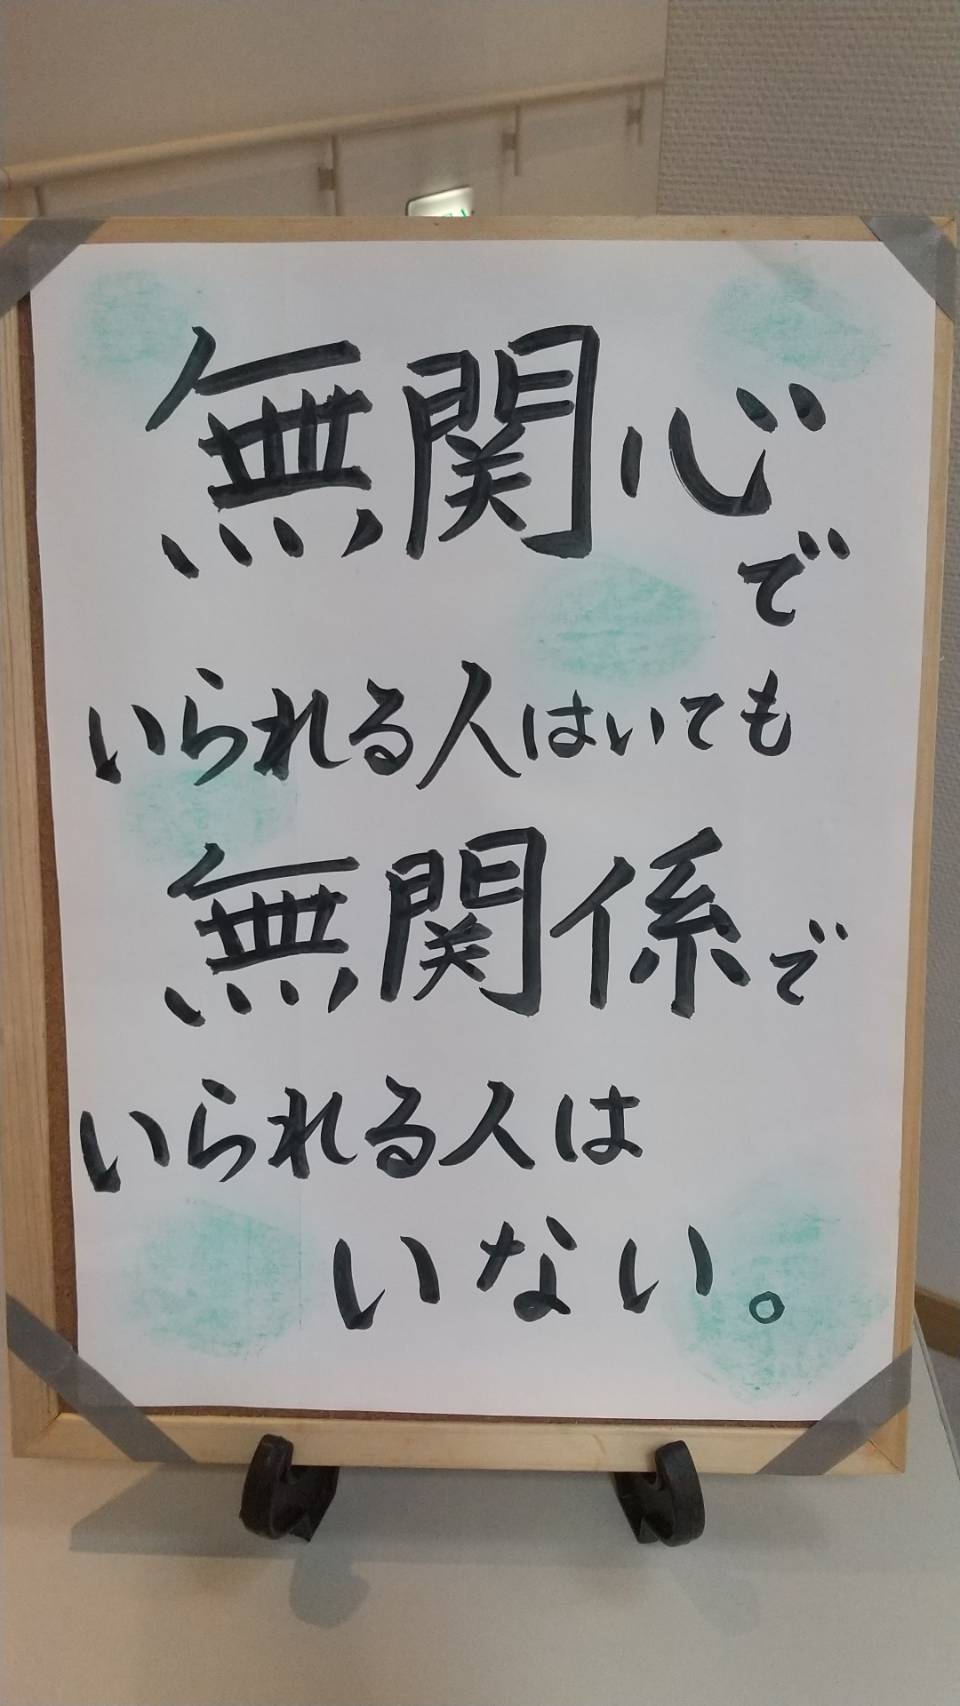 無関心で
いられる人はいても
無関係で
いられる人は
いない。